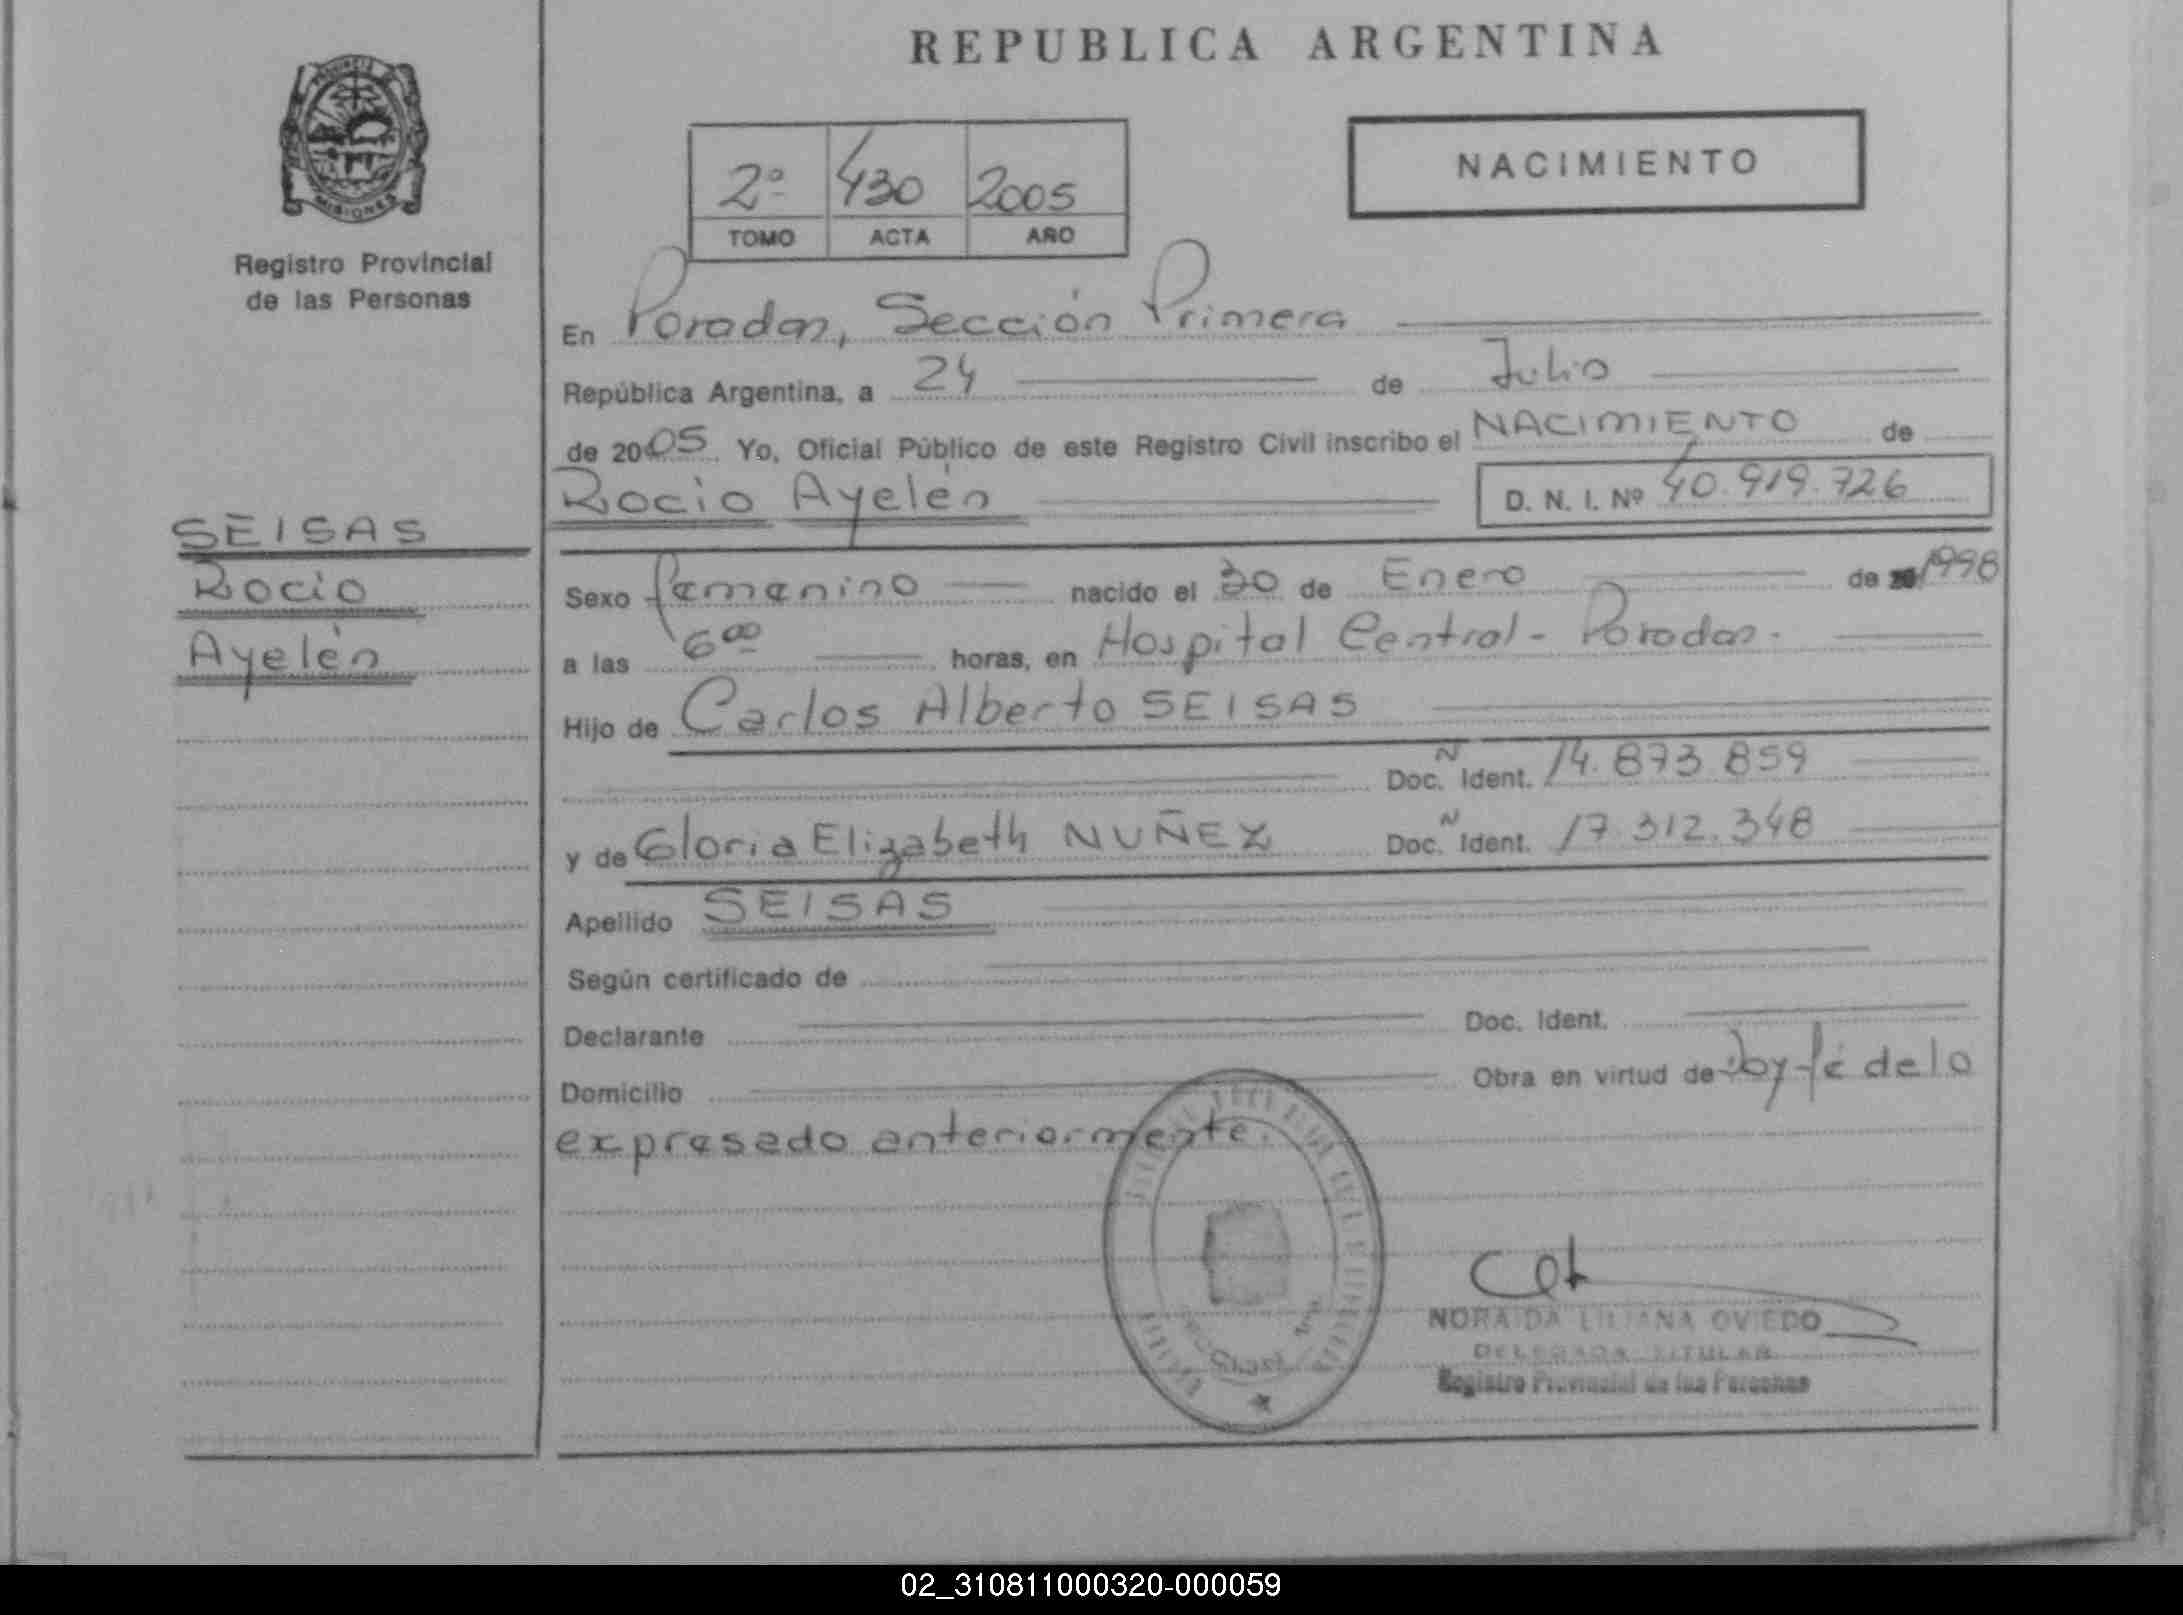 REPUBLICA ARGENTINA
PROVINCIA DE
MISIONES
Registro Provincial
de las Personas
2º 430 2005
TOMO ACTA AÑO
NACIMIENTO
En Posadas, Sección Primera
República Argentina, a 24 de Julio
de 2005 Yo, Oficial Público de este Registro Civil inscribo el NACIMIENTO de
Rocio Ayelén D. N. I. Nº 40.919.726
SEISAS
Rocio
Ayelén
Sexo femenino nacido el 30 de Enero de 1998
a las 6 00 horas, en Hospital Central - Posadas.
Hijo de Carlos Alberto SEISAS
Doc. Ident. 14.873.859
y de Gloria Elizabeth NUÑEZ Doc. Ident. 17.312.348
Apellido SEISAS
Según certificado de
Declarante Doc. Ident.
Domicilio Obra en virtud de Doy fé de lo
expresado anteriormente.
NORAIDA LILIANA OVIEDO
DELEGADA TITULAR
Registro Provincial de las Personas
02_310811000320-000059